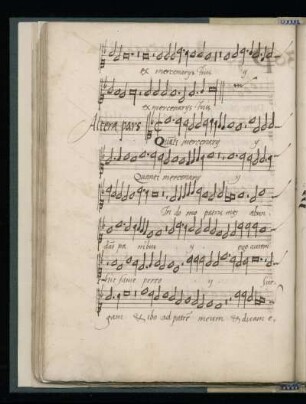 ex mercenarys tuis y
ex mercenarys tuis
Altera pars
Quati mercenary y
Quanti mercenary y
In do mo patris mei abun
dat pa nibus y ego autem
hic fame pereo y Sur
gam & ibo ad patrē meum & dicam e.